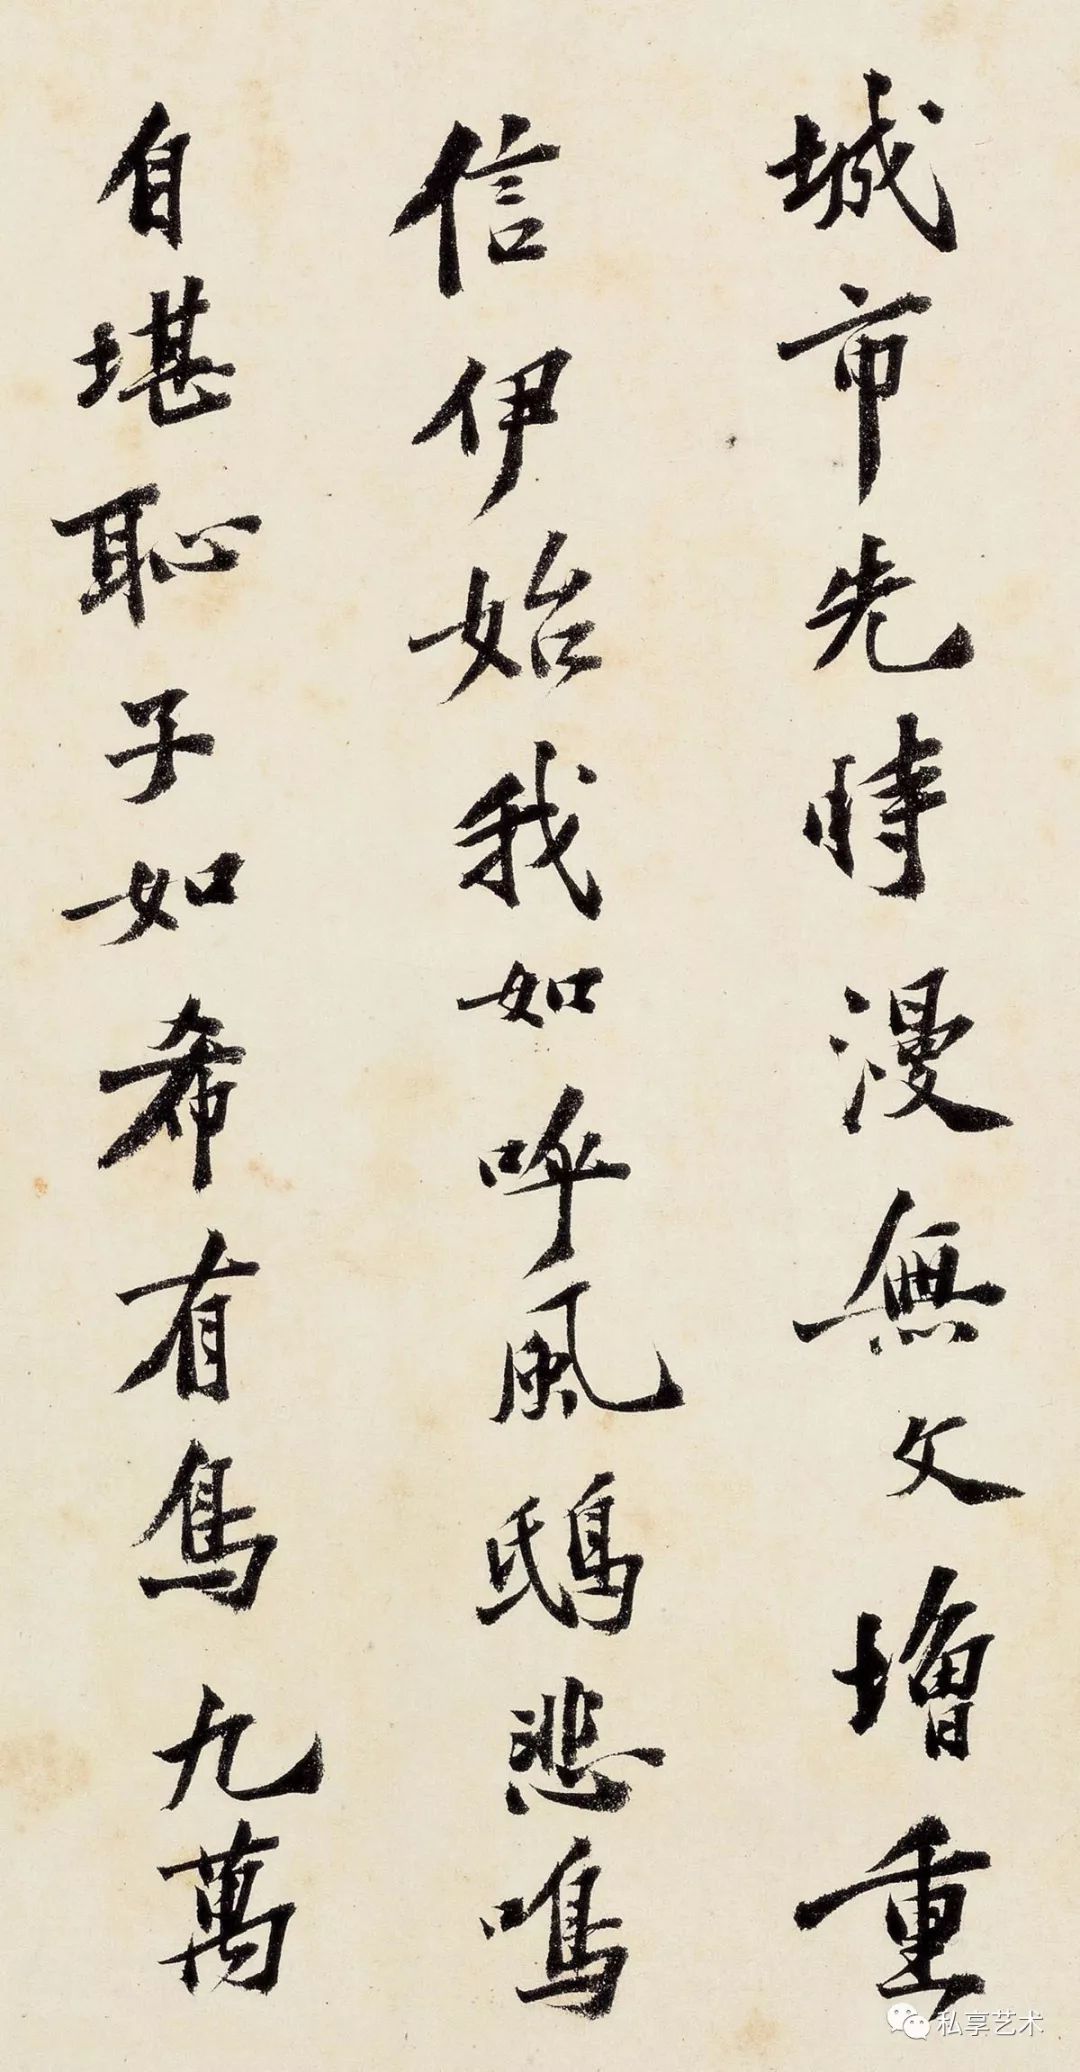 城市先時漫無文增重
信伊始我如呼風鴟悲鳴
自堪恥子如希有鳥九萬
私享艺术